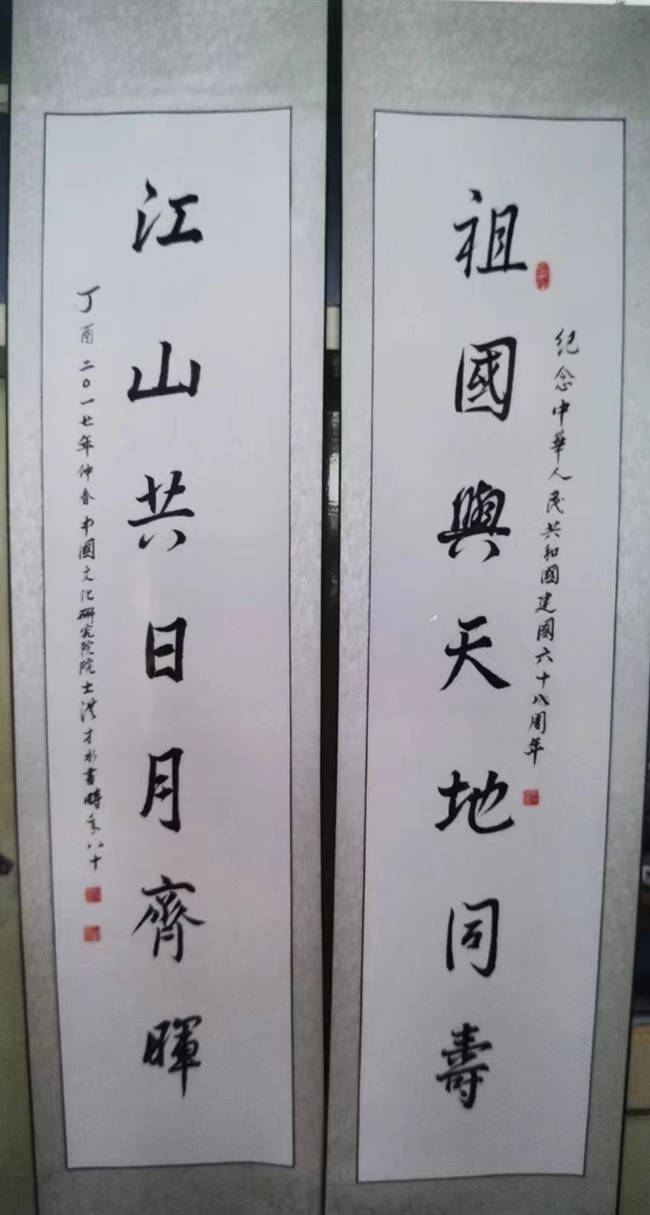 祖國與天地同壽
紀念中華人民共和國建國六十八周年
江山共日月齊暉
丁酉二〇一七年仲春中國文化研究院院士洪才水書時年八十